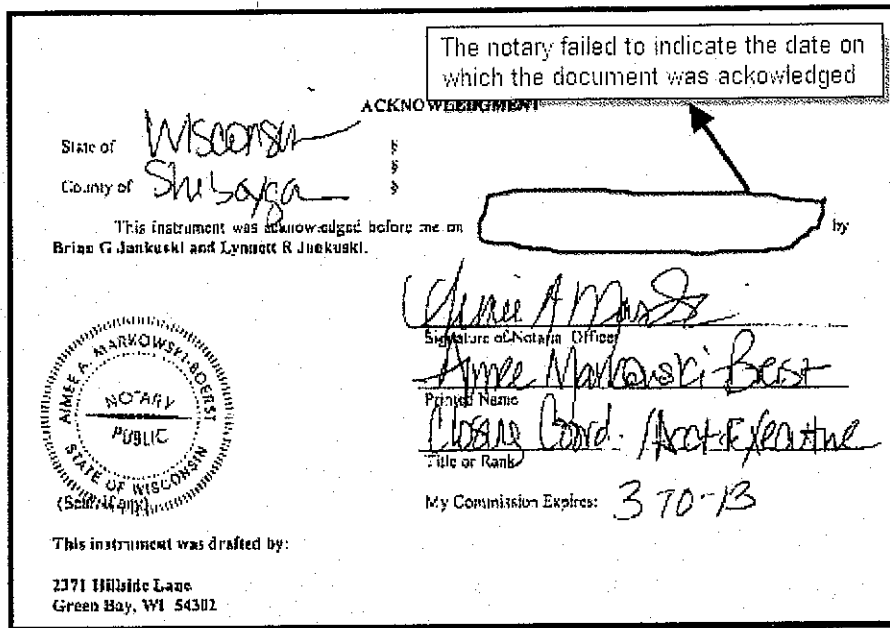 The notary failed to indicate the date on
which the document was ackowledged
ACKNOWLEDGMENT
State of Wisconsin §
§
County of §
This instrument was acknowledged before me on by
Brian G Jankuski and Lynnett R Jankuski.
Signature of Notarial Officer
Aimee Markowski-Boerst
Printed Name
Closing Coord. / Acct. Executive
Title or Rank
My Commission Expires:
AIMEE A. MARKOWSKI-BOERST
NOTARY
PUBLIC
STATE OF WISCONSIN
(Seal, if any)
This instrument was drafted by:
2371 Hillside Lane
Green Bay, WI 54302